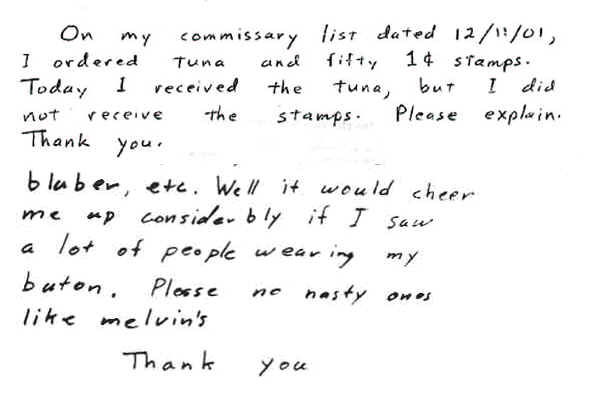 On my commissary list dated 12/11/01,
I ordered tuna and fifty 1¢ stamps.
Today I received the tuna, but I did
not receive the stamps. Please explain.
Thank you.
blaber, etc. Well it would cheer
me up considerbly if I saw
a lot of people wearing my
buton. Plesse no nasty ones
like melvin's
Thank you